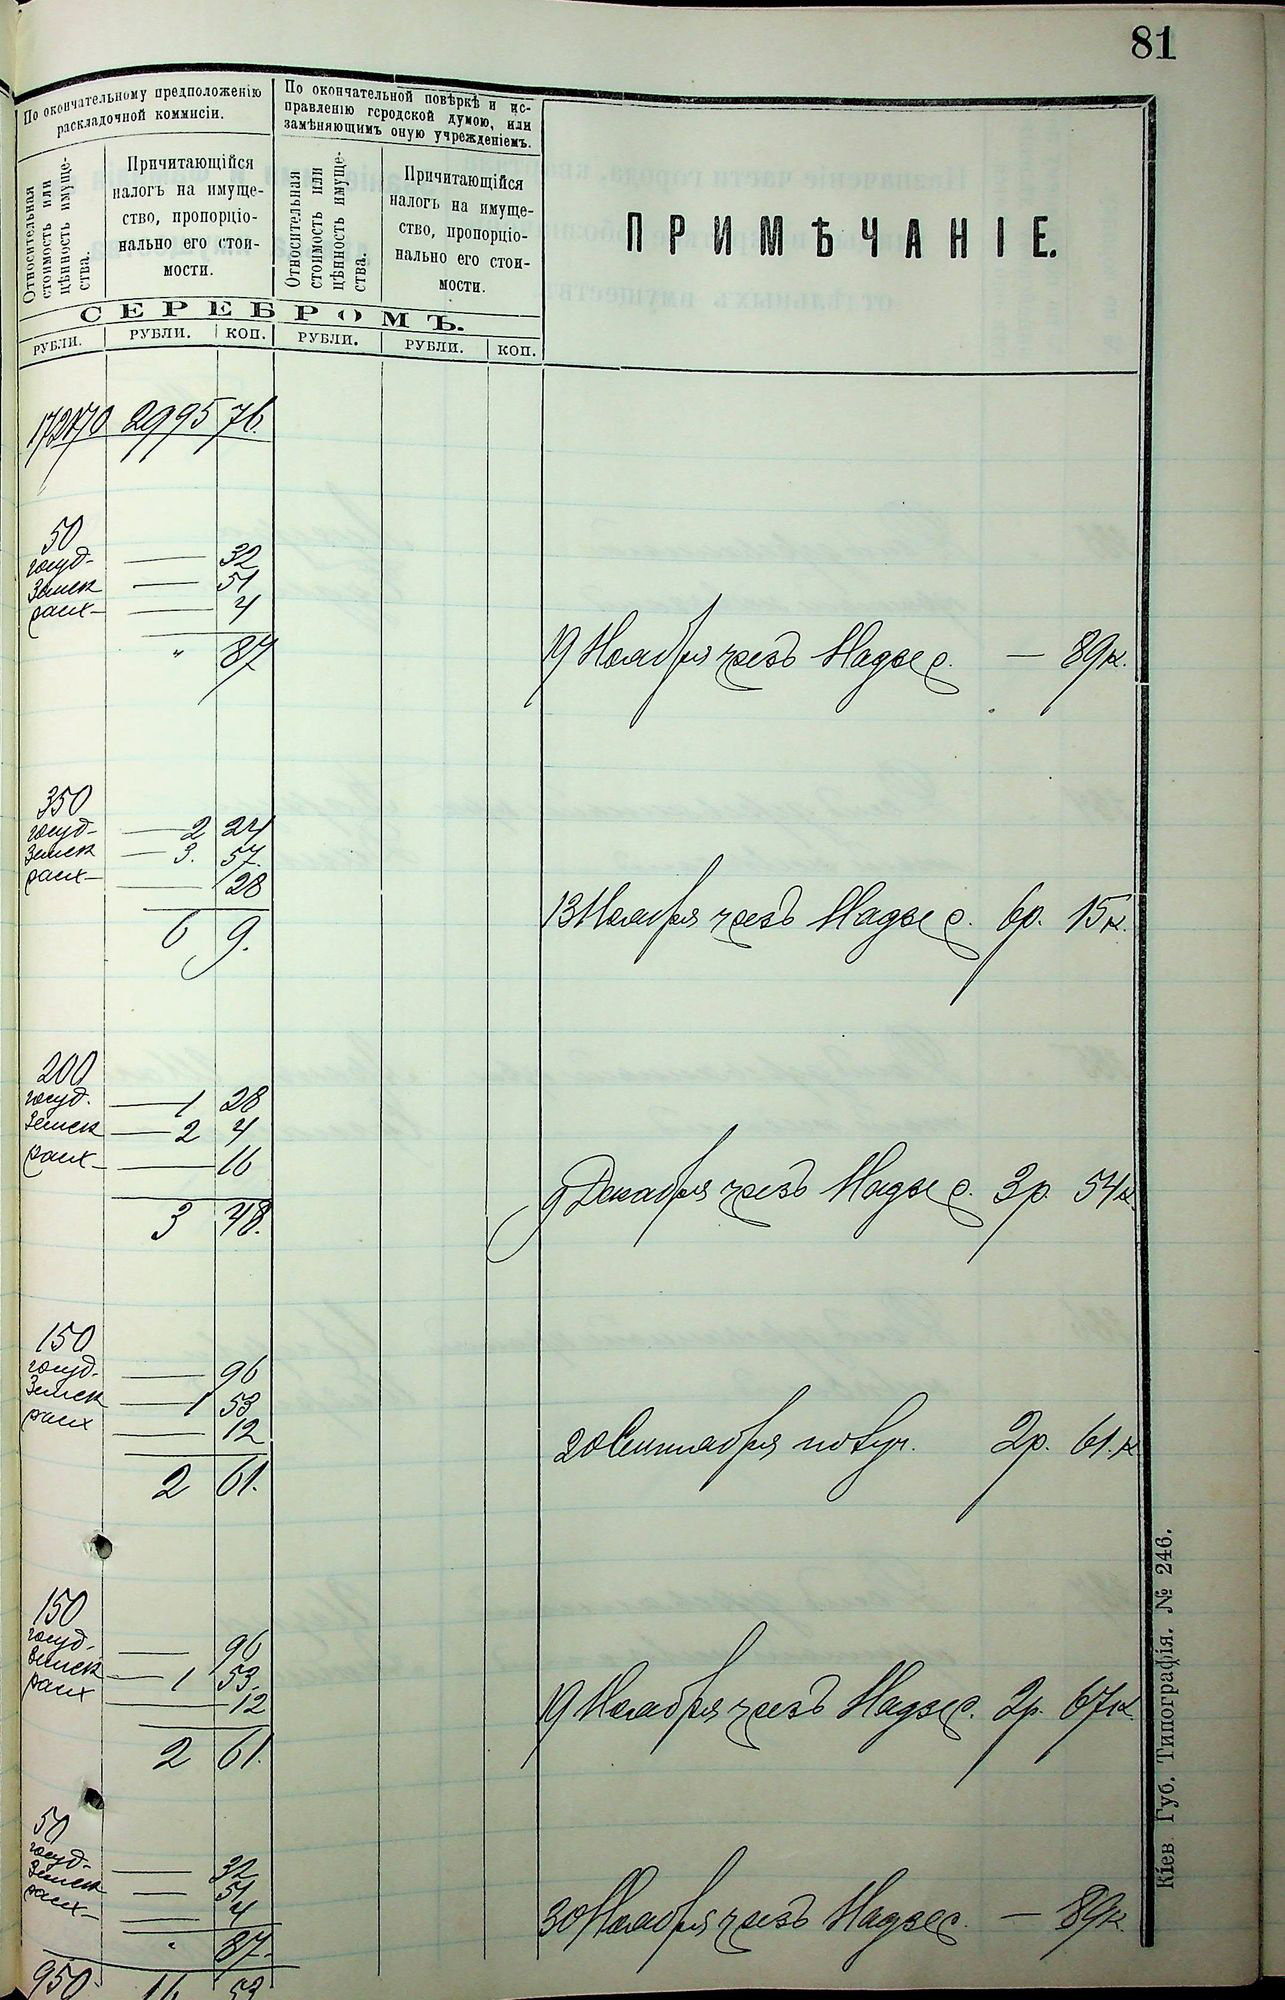 81
По окончательному предположенію
раскладочной коммисіи.
По окончательной повѣркѣ и ис-
правленію городской думою, или
замѣняющимъ оную учрежденіемъ.
Относительная
стоимость или
цѣнность имуще-
ства.
Причитающійся
налогъ на имуще-
ство, пропорціо-
нально его стои-
мости.
Относительная
стоимость или
цѣнность имуще-
ства.
Причитающійся
налогъ на имуще-
ство, пропорціо-
нально его стои-
мости.
ПРИМѢЧАНІЕ.
СЕРЕБРОМЪ.
РУБЛИ. РУБЛИ. КОП. РУБЛИ. РУБЛИ. КОП.
2995 76.
50
госуд- — 32
Земск — 51
расх- — 4
" 87
19 Ноября чрезъ Надзе — 89к.
350
госуд- — 2 24
Земск — 3. 57.
расх- — 28
6 9.
13 Ноября чрезъ Надзе 6р. 15к.
200
госуд. — 1 28
Земск — 2 4
расх- — 16
3 48.
9 Декабря чрезъ Надзе 3р. 54к.
150
госуд. — 96
Земск — 1 53
расх — 12
2 61.
20 Сентября 2р. 61.к
150
госуд. — 96
Земск — 1 53.
расх — 12
2 61.
19 Ноября чрезъ Надзе 2р. 67к.
50
госуд- — 32
Земск — 51
расх- — 4
" 87.
30 Ноября чрезъ Надзе — 89к.
950 16 53
Кіев. Губ. Типографія. № 246.